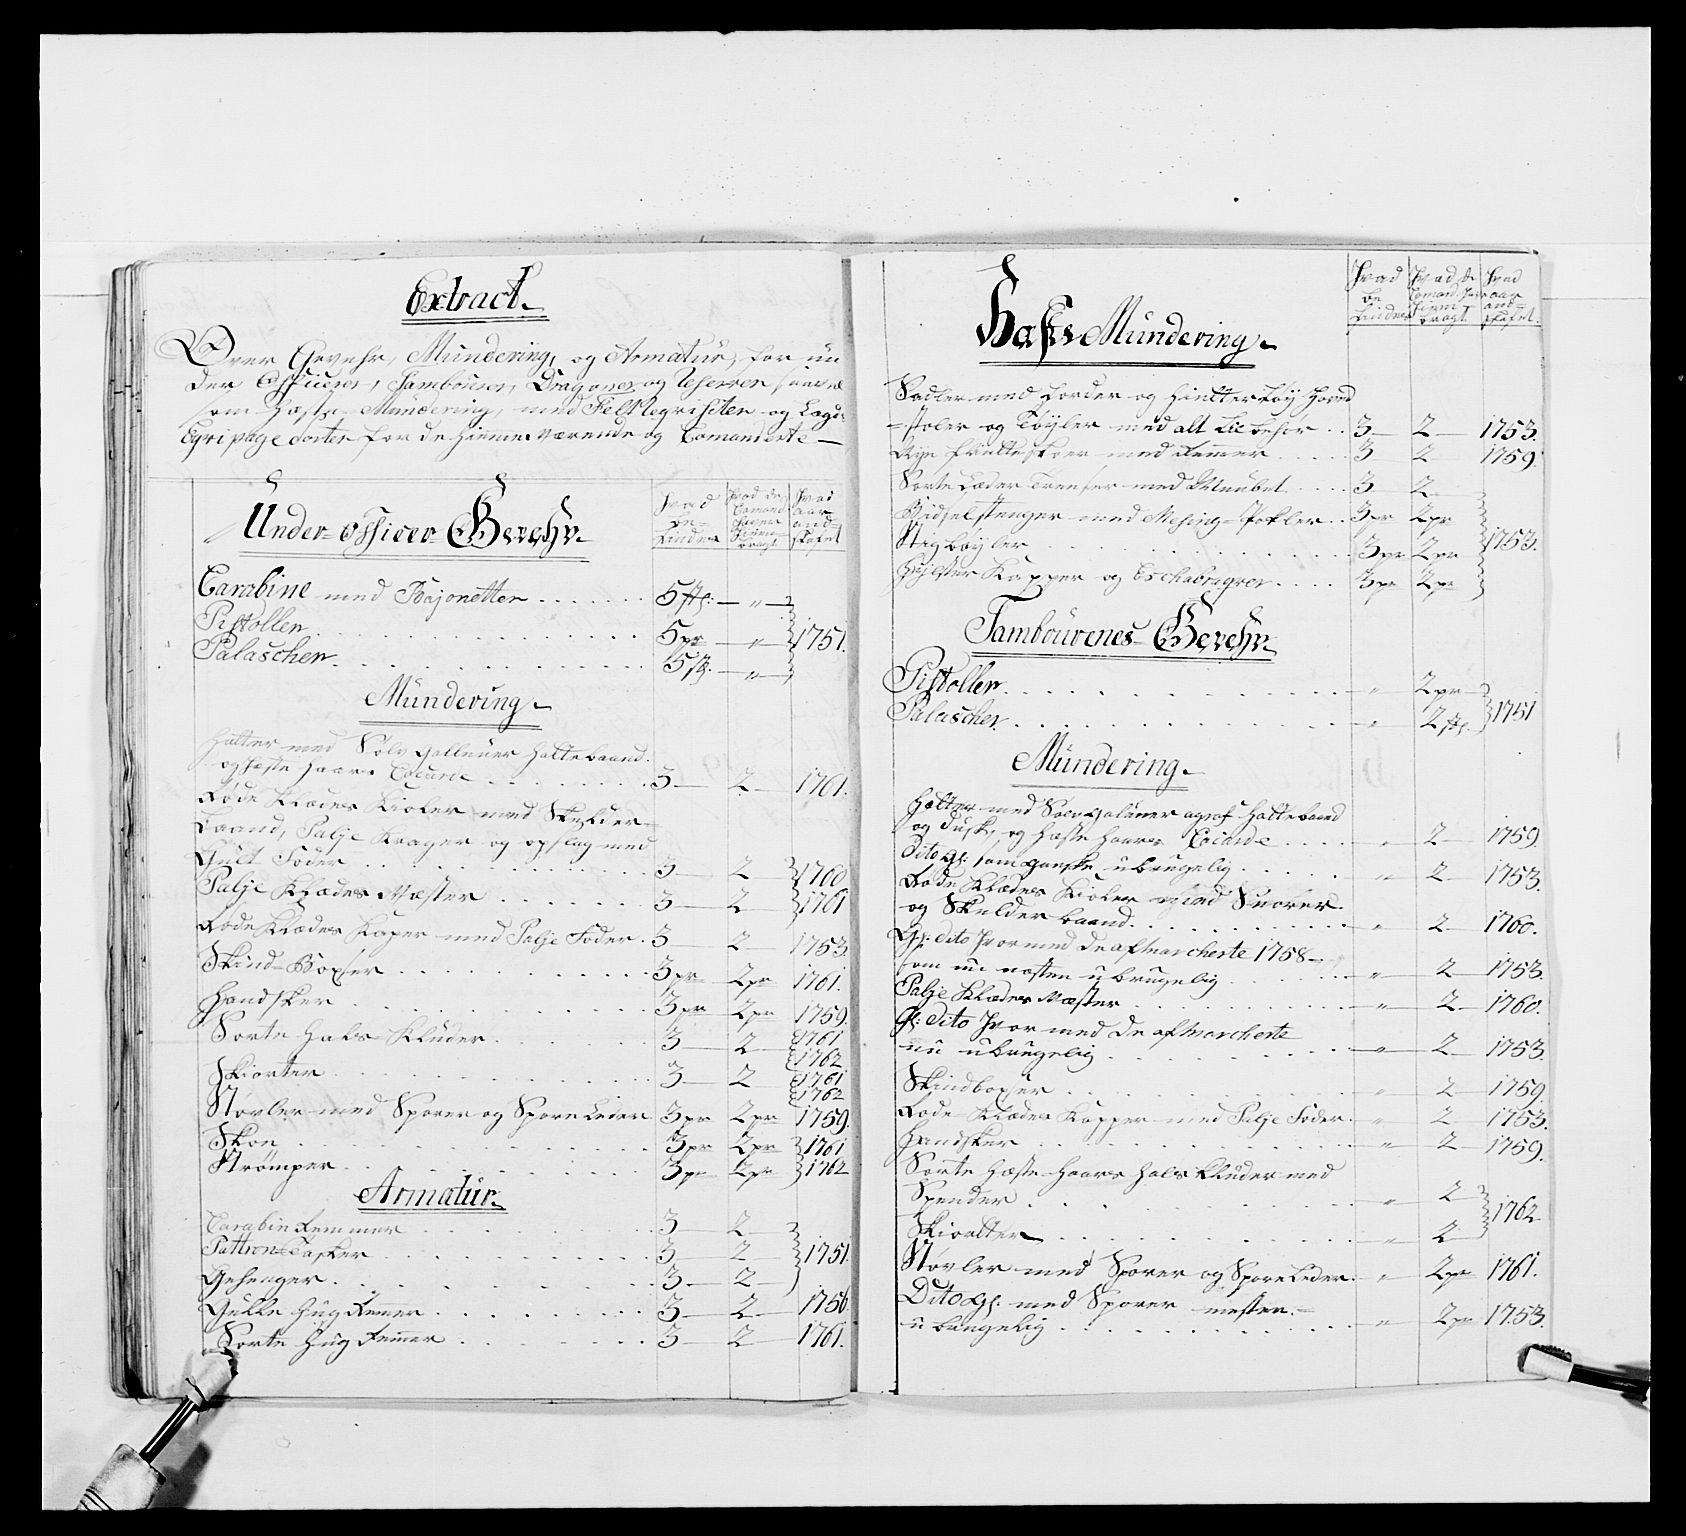 Extract
Over Gevehr, Mündering, og Armatur, for un
der Officerer, Tambourer, Dragoner og Reserven saavel
som Hæste Mündering, med Felt Reqvisiten og Lage
Eqvipage Sorter for de hiemmeværende og Comanderte
Under officer Gevehr
Hvad be-findes
Hvad de Comand: haver hiem-bragt
Hvad aar and skafet
Carabine med Bajonetter 5 stk: — „ —
Pistoller 5 pr — „ — 1751.
Palascher 5 stk. — „ —
Mündering
Hatter med Sølv Galleuer Hattebaand
og Hæste Haars Cocarde 3 2 1761.
Røde Klædes Kioler med Skulder-
baand, Palje Krager og opslag med
Gult Foder 3 2 1760
Palje Klædes Væster 3 2 1761
Røde Klædes Kaper med Palje Foder 3 2 1753.
Skind-Boxser 3 pr 2 pr 1761.
Handsker 3 pr 2 pr 1759.
Sorte Hals Klüder 3 2 1761 1762
Skiorter 3 2 1761 1762
Støvler med Sporer og Spore Leder 3 pr 2 pr 1759.
Skoe 3 pr 2 pr 1761
Strømper 3 pr 2 pr 1762
Armatur
Carabin Remmer 3 2
Pattron-Tasker 3 2 1751.
Gehenger 3 2
Gulle Hug Remer 3 2 1756
Sorte Hug Remer 3 2 1761.
Hæste Mündering
Hvad be findes
Hvad de Comand: haver hiem bragt
Hvad aar and skafet.
Sadler med Forder og Hintertøy Hoved
=stoler og Tøyler med alt Tilbehør 3 2 1753.
Nye remer 3 2 1759.
Sorte Læder Trenser med Munbet 3 2
Bidselstenger med Mesing-Pokler 3 pr 2 pr
Stigbøyler 3 pr 2 pr 1753.
Hylster Kapper og Eschabraqver 3 pr 2 pr
Tambourenes Gevehr
Pistoller „ 2 pr
Palascher „ 2 stk. 1751
Mündering
Hatter med Sølv galuner agraf Hattebaand
og Dusk, og Hæste Haars Cocarde „ 2 1759.
Dito gl: som ganske ubrugelig „ 2 1753.
Røde Klædes Kioler med Snorer
og Skulder baand „ 2 1760.
Gl: Dito Hvormed de afmarcherte 1758
som nu næsten ubrugelig „ 2 1753.
Palje Klædes Væster „ 2 1760.
Gl: Dito Hvor med de afmarcherte
nu ubrugelig „ 2 1753.
Skindboxser „ 2 1759.
Røde Klædes Kapper med Palje Foder „ 2 1753.
Handsker „ 2 1759.
Sorte Hæste Haars Hals Klüder med
Spender „ 2
Skiortter „ 2 1762
Støvler med Sporer og Spore Leder „ 2 pr 1761.
Dito gl: med Sporer nesten
ubrugelig „ 2 pr 1753.